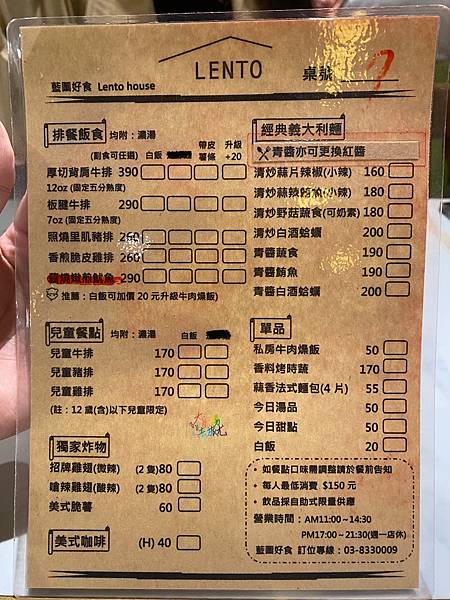 LENTO
桌號
藍圖好食 Lento house
排餐飯食 均附:濃湯
(副食可任選) 白飯 帶皮薯條 升級+20
厚切背肩牛排 390
12oz (固定五分熟度)
板腱牛排 290
7oz (固定五分熟度)
照燒里肌豬排 260
香煎脆皮雞排 260
290
推薦:白飯可加價 20 元升級牛肉燥飯)
兒童餐點 均附:濃湯 白飯
兒童牛排 170
兒童豬排 170
兒童雞排 170
(註:12 歲(含)以下兒童限定)
獨家炸物
招牌雞翅(微辣) (2 隻)80
嗆辣雞翅(酸辣) (2 隻)80
美式脆薯 60
美式咖啡 (H) 40
經典義大利麵
青醬亦可更換紅醬
清炒蒜片辣椒(小辣) 160
清炒蒜辣(小辣) 180
清炒野菇蔬食(可奶素) 180
清炒白酒蛤蠣 200
青醬蔬食 190
青醬鮪魚 190
青醬白酒蛤蠣 200
單品
私房牛肉燥飯 50
香料烤時蔬 170
蒜香法式麵包(4 片) 55
今日湯品 50
今日甜點 50
白飯 20
· 如餐點口味需調整請於餐前告知
· 每人最低消費 $150 元
· 飲品採自助式限量供應
營業時間:AM11:00~14:30
PM17:00~21:30(週一店休)
藍圖好食 訂位專線:03-8330009